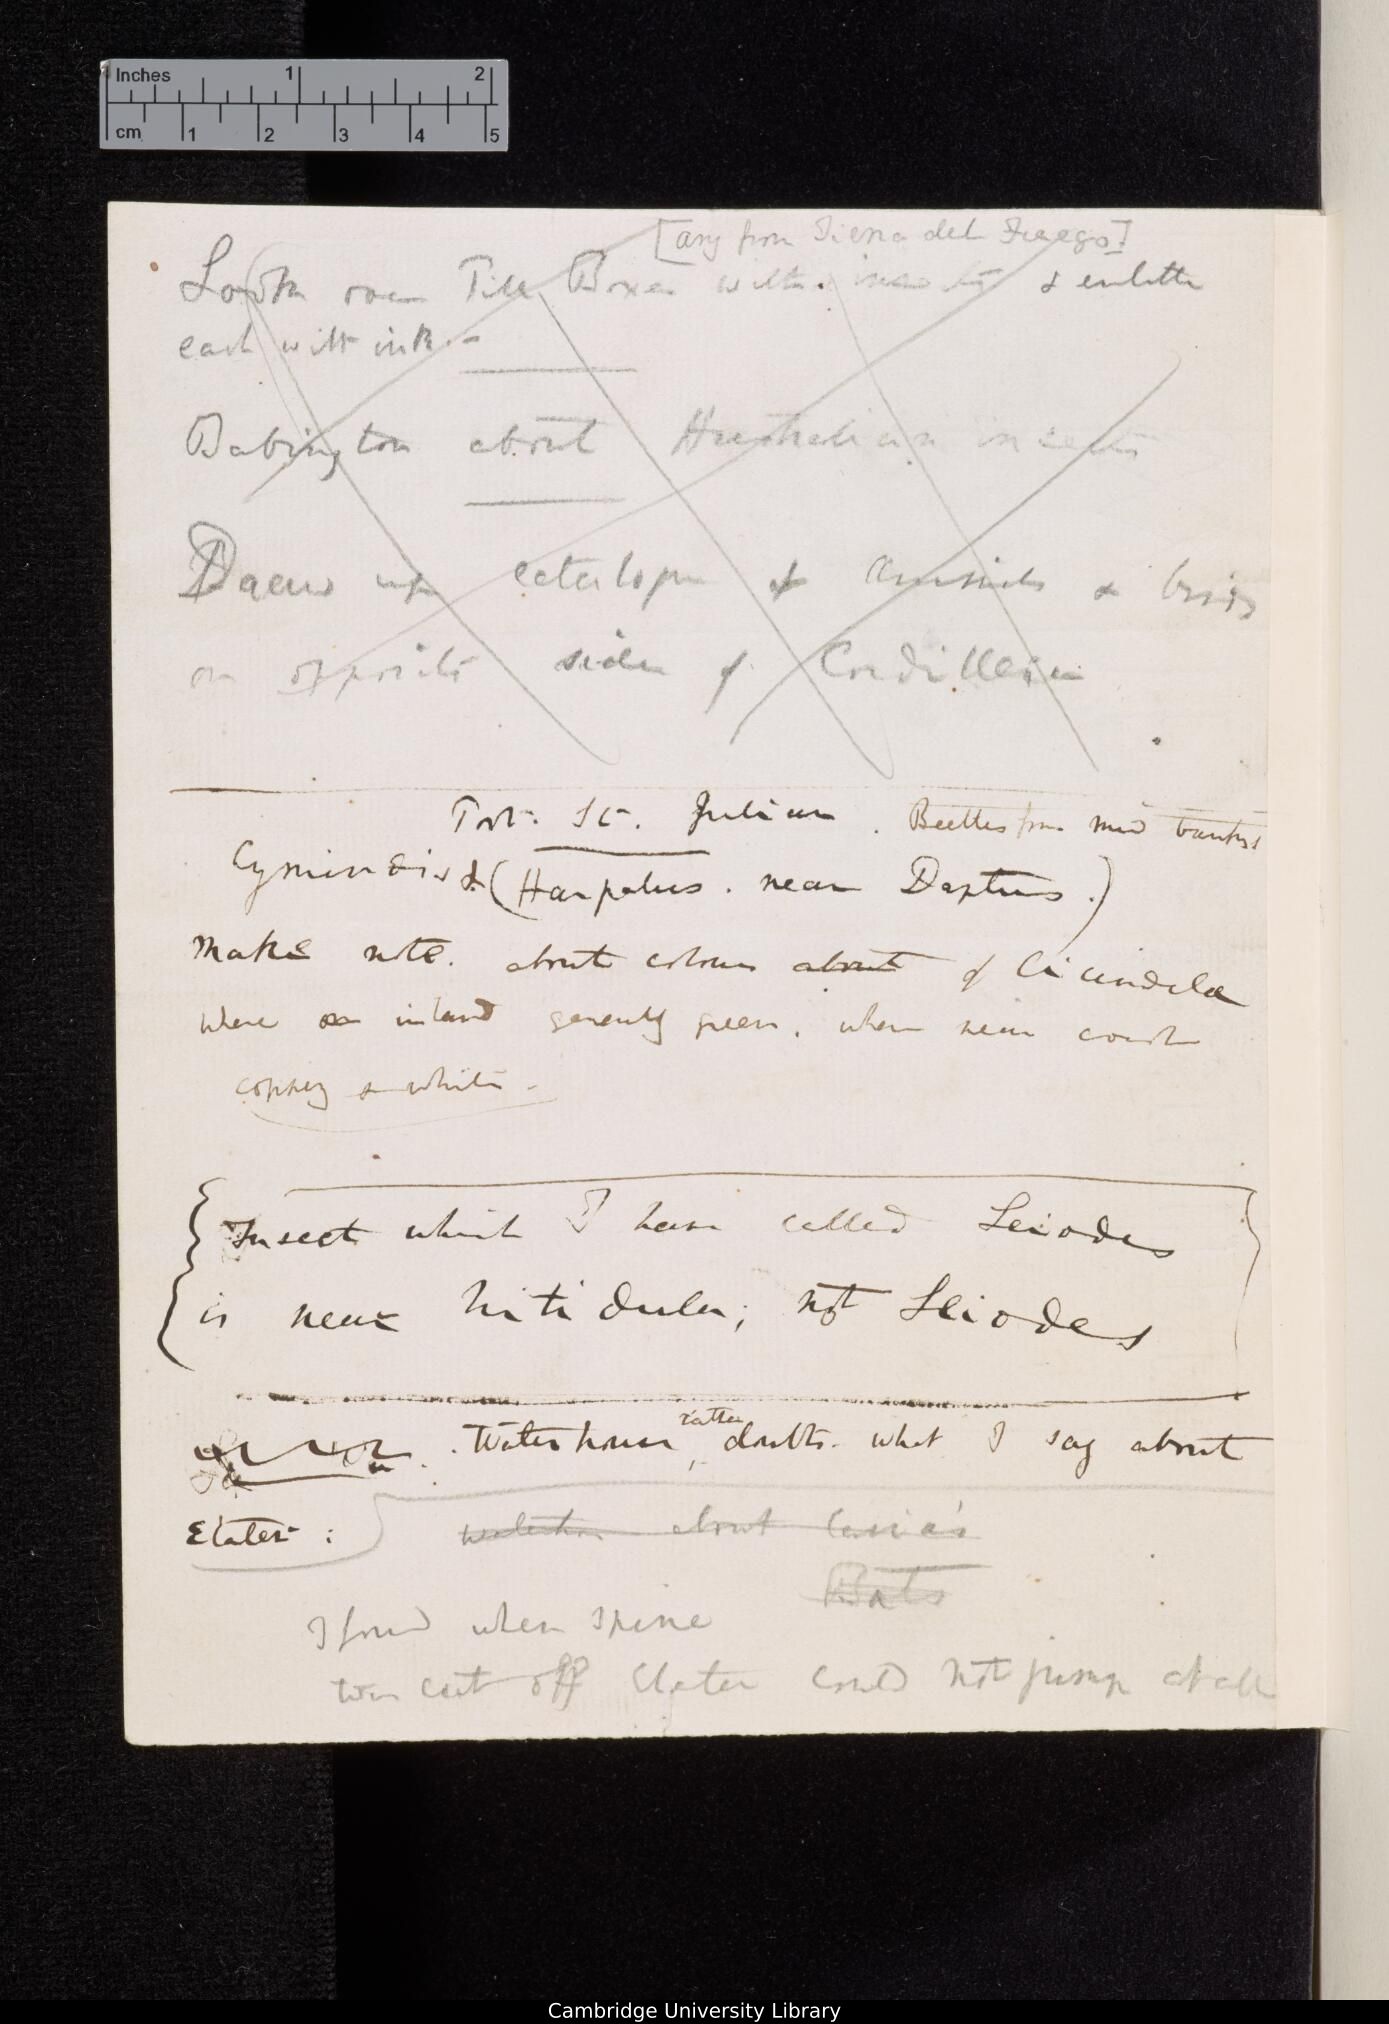 Inches 1 2
cm 1 2 3 4 5
[any from Tierra del Fuego?]
Look over Pill Boxes with insects & enlette
each with ink. —
Babington about Australian insects
Draw up catalogue of animals & birds
on opposite sides of Cordilleras
Port. St. Julian. Beetles from mud banks
Cymindis & (Harpalus. near Daptus.)
Make note. about colours about of Cicindela
where on inland generally green. when near coast
coppery & white. —
Insect which I have called Leiodes
is near Nitidula; not Leiodes
Waterhouse, rather doubts. what I say about
Elater: Waterhouse about
Bats
I found when spine
was cut off Elater could not jump at all
Cambridge University Library